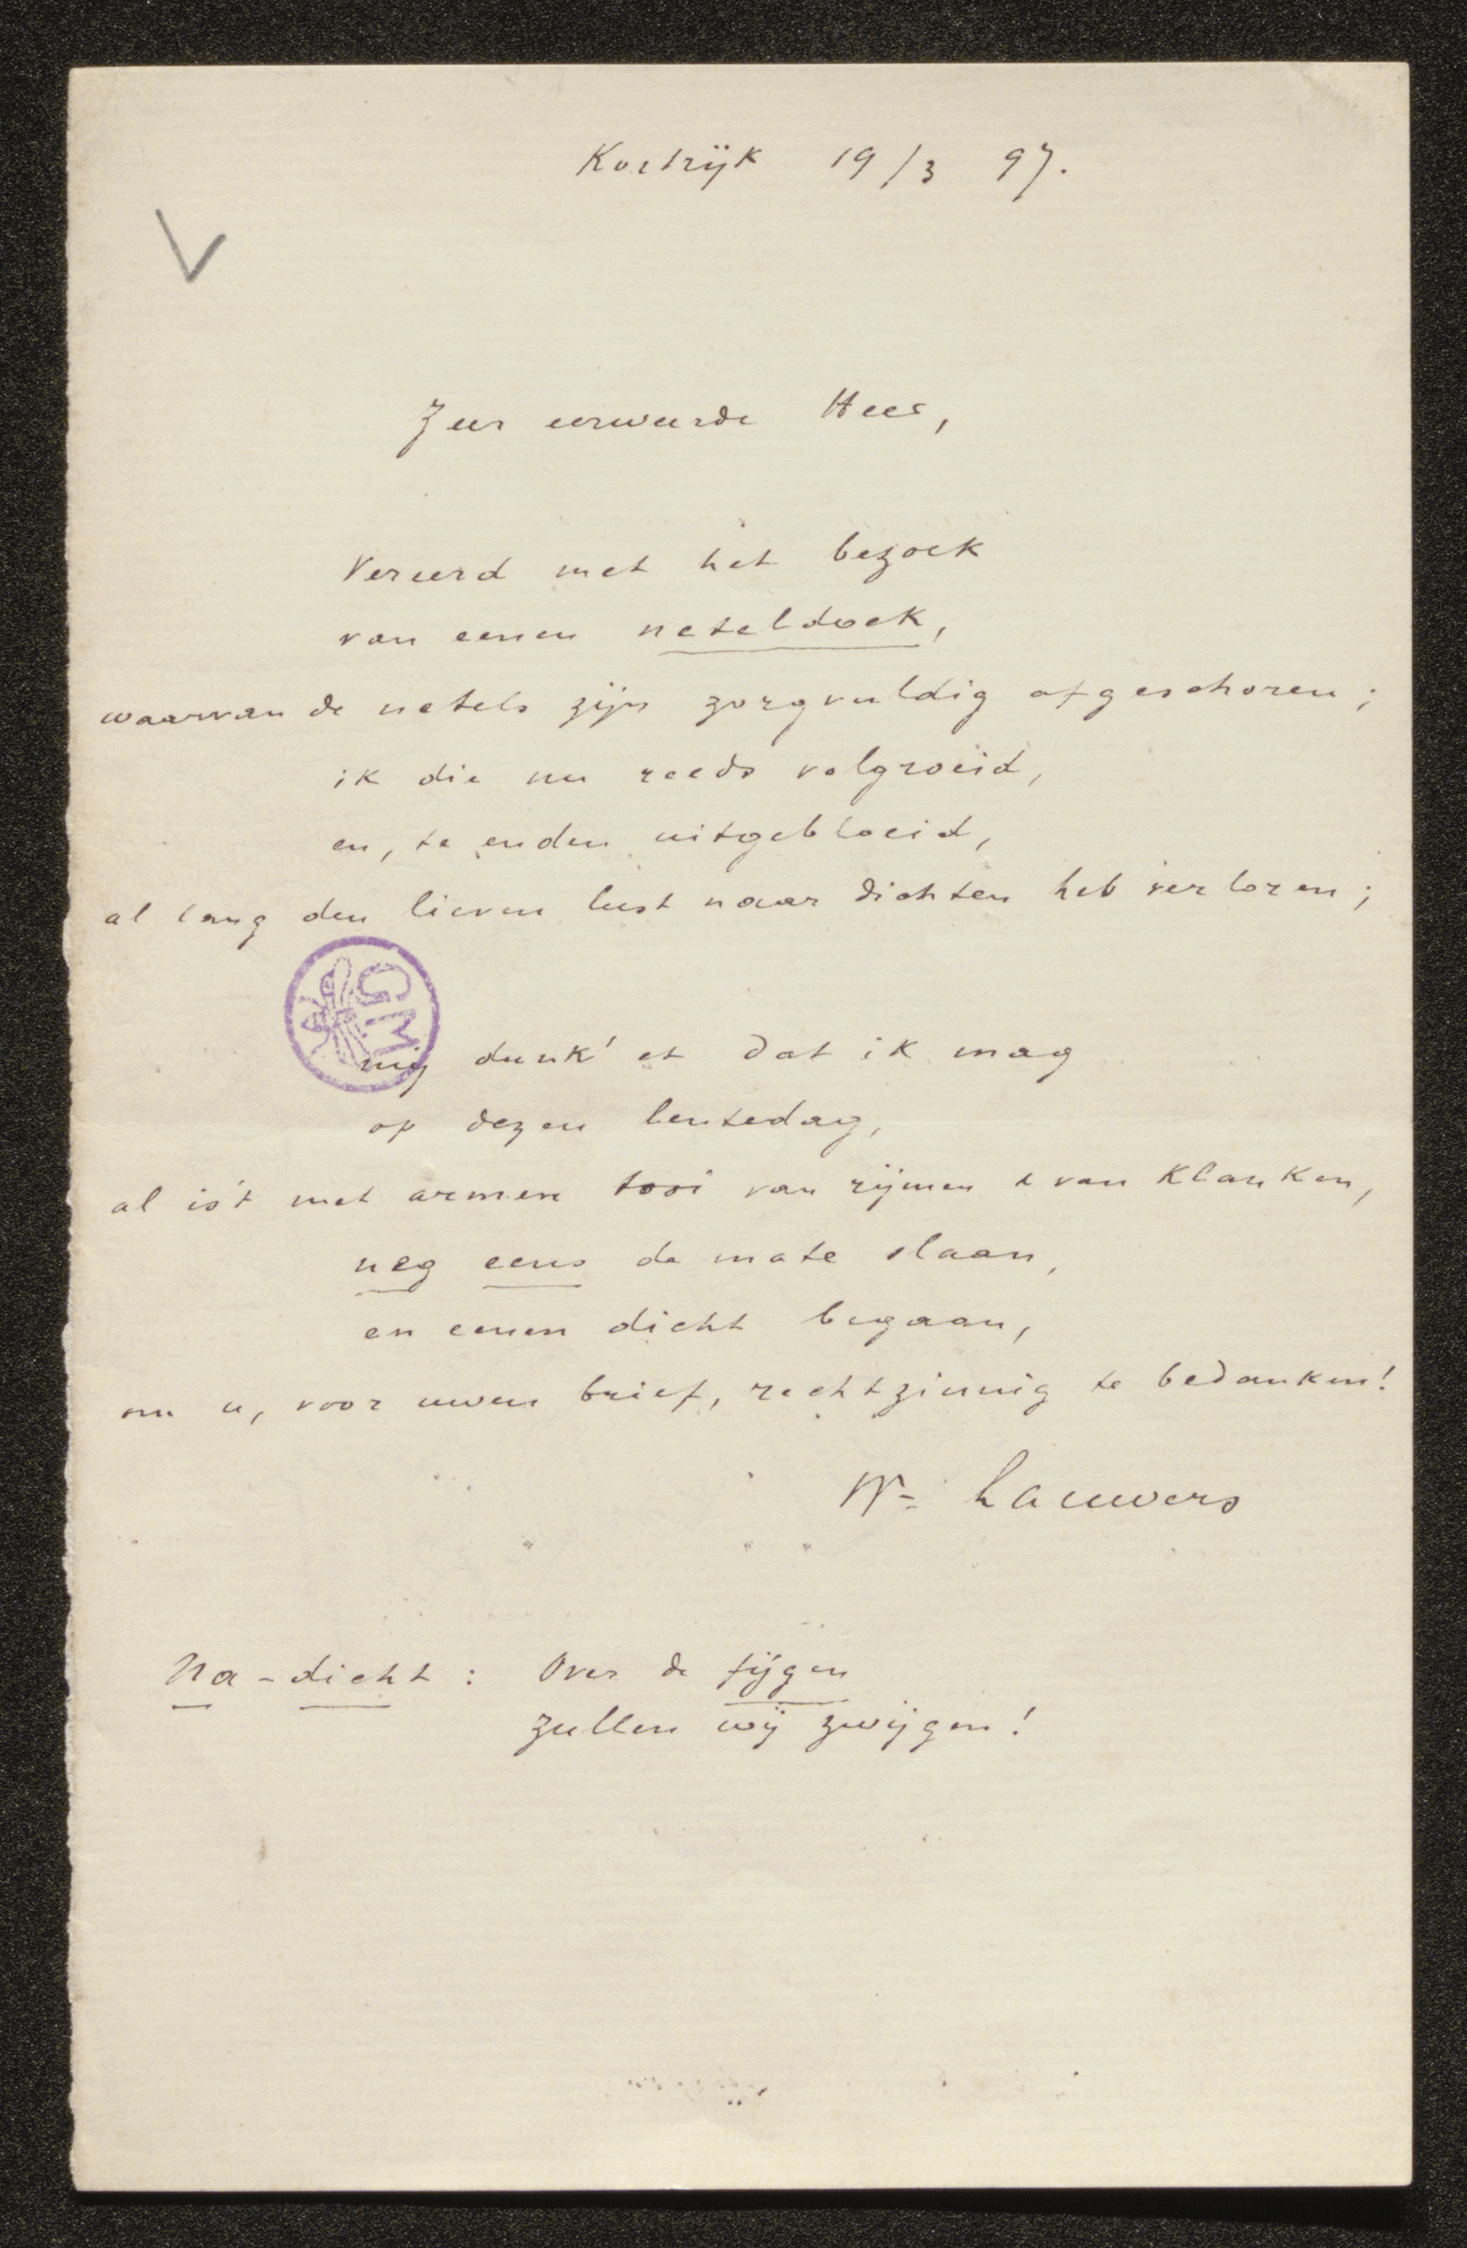 Kortrijk 19/3 97.
Zeer eerweerde Heer,
Vereerd met het bezoek
van eenen neteldoek,
waarvan de netels zijn zorgvuldig afgeschoren;
ik die nu reeds volgroeid,
en, te enden uitgebloeid,
al lang den lieven lust naar dichten heb verloren;
GM
mij dunk' et dat ik mag
op dezen lentedag,
al is't met armen tooi van rijmen & van klanken,
neg eens de mate slaan,
en eenen dicht begaan,
om u, voor uwen brief, rechtzinnig te bedanken!
Wn Lauwers
Na-dicht: Over de fijgen
zullen wij zwijgen!